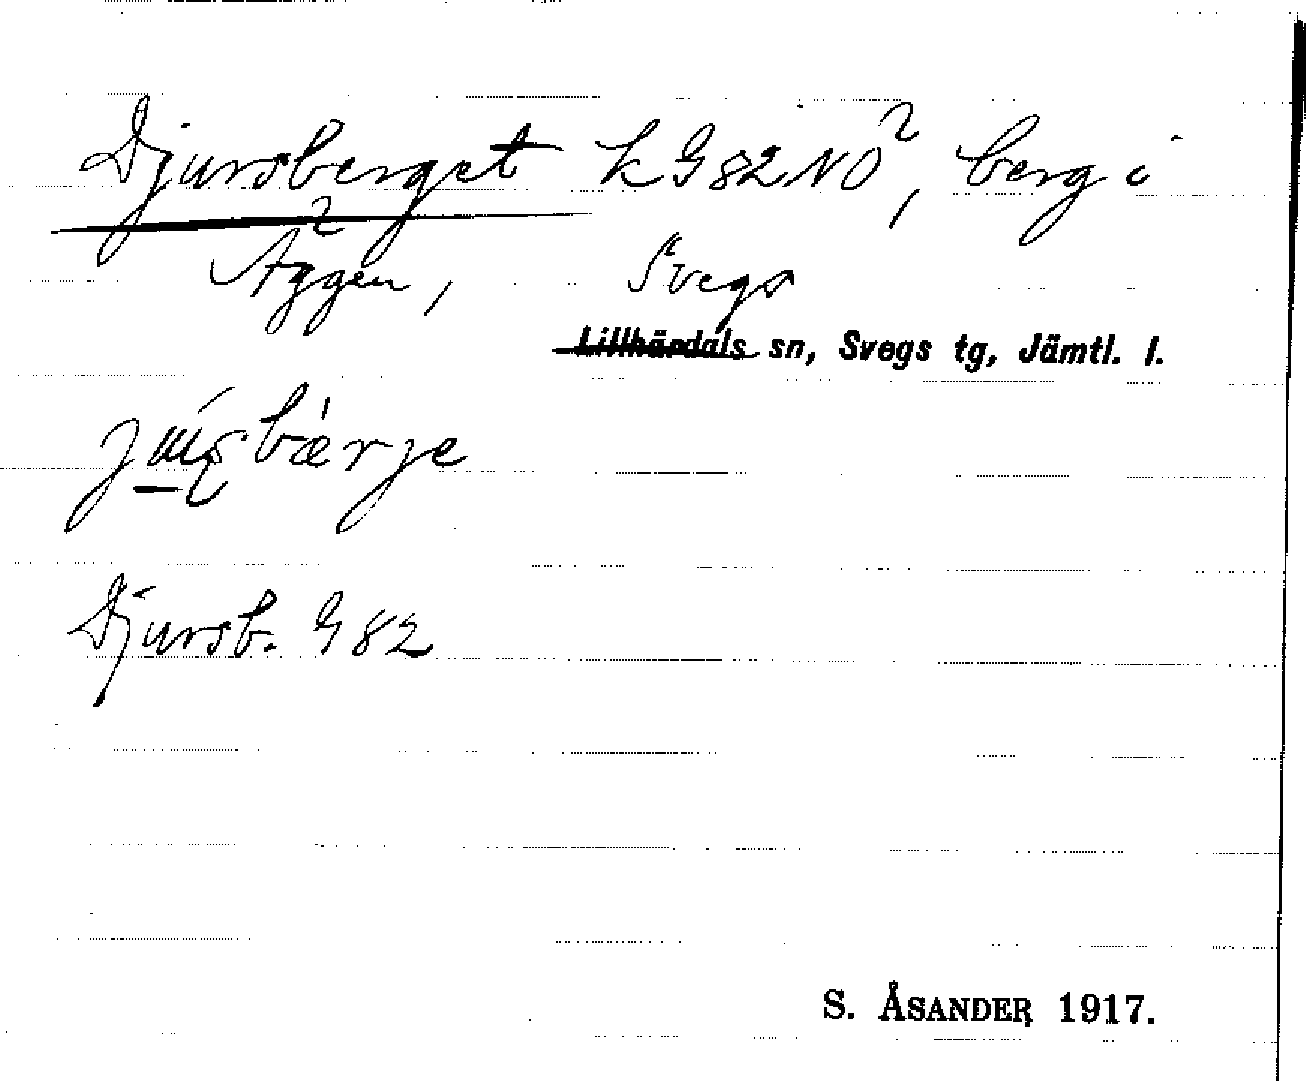 Djursberget k G82NO², berg i
Äggen, Svegs
Lillhärdals sn, Svegs tg, Jämtl. l.
Djursb. G 82
S. ÅSANDER 1917.